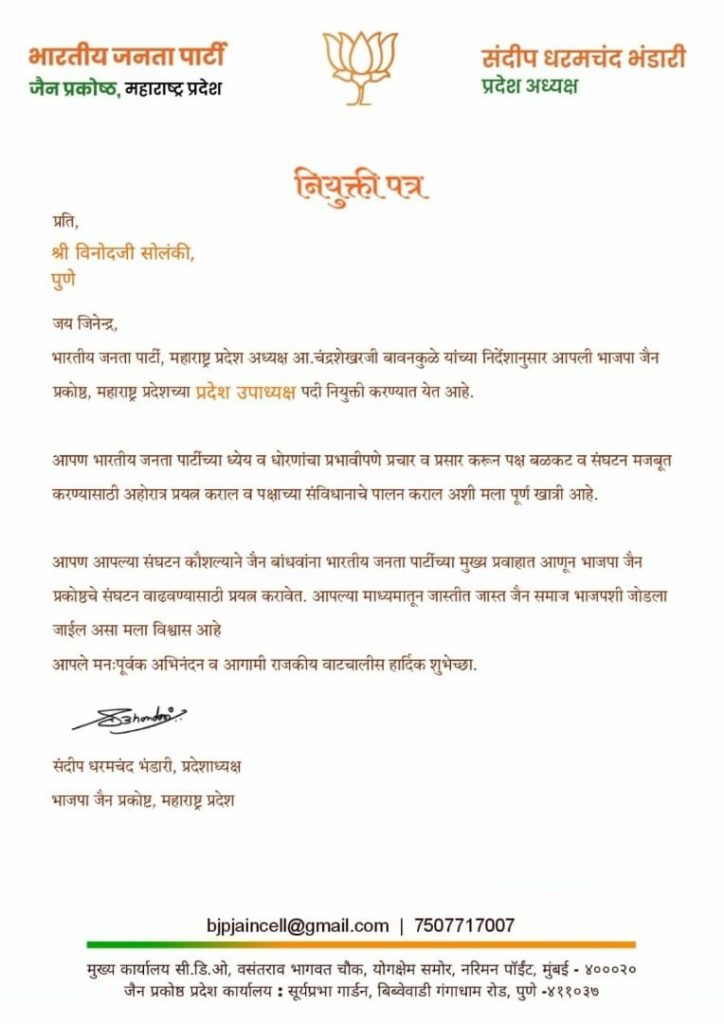 भारतीय जनता पार्टी
जैन प्रकोष्ठ, महाराष्ट्र प्रदेश
संदीप धरमचंद भंडारी
प्रदेश अध्यक्ष
नियुक्ती पत्र
प्रति,
श्री विनोदजी सोलंकी,
पुणे
जय जिनेन्द्र,
भारतीय जनता पार्टी, महाराष्ट्र प्रदेश अध्यक्ष आ.चंद्रशेखरजी बावनकुळे यांच्या निर्देशानुसार आपली भाजपा जैन
प्रकोष्ठ, महाराष्ट्र प्रदेशच्या प्रदेश उपाध्यक्ष पदी नियुक्ती करण्यात येत आहे.
आपण भारतीय जनता पार्टीच्या ध्येय व धोरणांचा प्रभावीपणे प्रचार व प्रसार करून पक्ष बळकट व संघटन मजबूत
करण्यासाठी अहोरात्र प्रयत्न कराल व पक्षाच्या संविधानाचे पालन कराल अशी मला पूर्ण खात्री आहे.
आपण आपल्या संघटन कौशल्याने जैन बांधवांना भारतीय जनता पार्टीच्या मुख्य प्रवाहात आणून भाजपा जैन
प्रकोष्ठचे संघटन वाढवण्यासाठी प्रयत्न करावेत. आपल्या माध्यमातून जास्तीत जास्त जैन समाज भाजपशी जोडला
जाईल असा मला विश्वास आहे
आपले मनःपूर्वक अभिनंदन व आगामी राजकीय वाटचालीस हार्दिक शुभेच्छा.
संदीप धरमचंद भंडारी, प्रदेशाध्यक्ष
भाजपा जैन प्रकोष्ट, महाराष्ट्र प्रदेश
bjpjaincell@gmail.com | 7507717007
मुख्य कार्यालय सी.डि.ओ, वसंतराव भागवत चौक, योगक्षेम समोर, नरिमन पॉईंट, मुंबई - ४०००२०
जैन प्रकोष्ठ प्रदेश कार्यालय : सूर्यप्रभा गार्डन, बिब्वेवाडी गंगाधाम रोड, पुणे -४११०३७